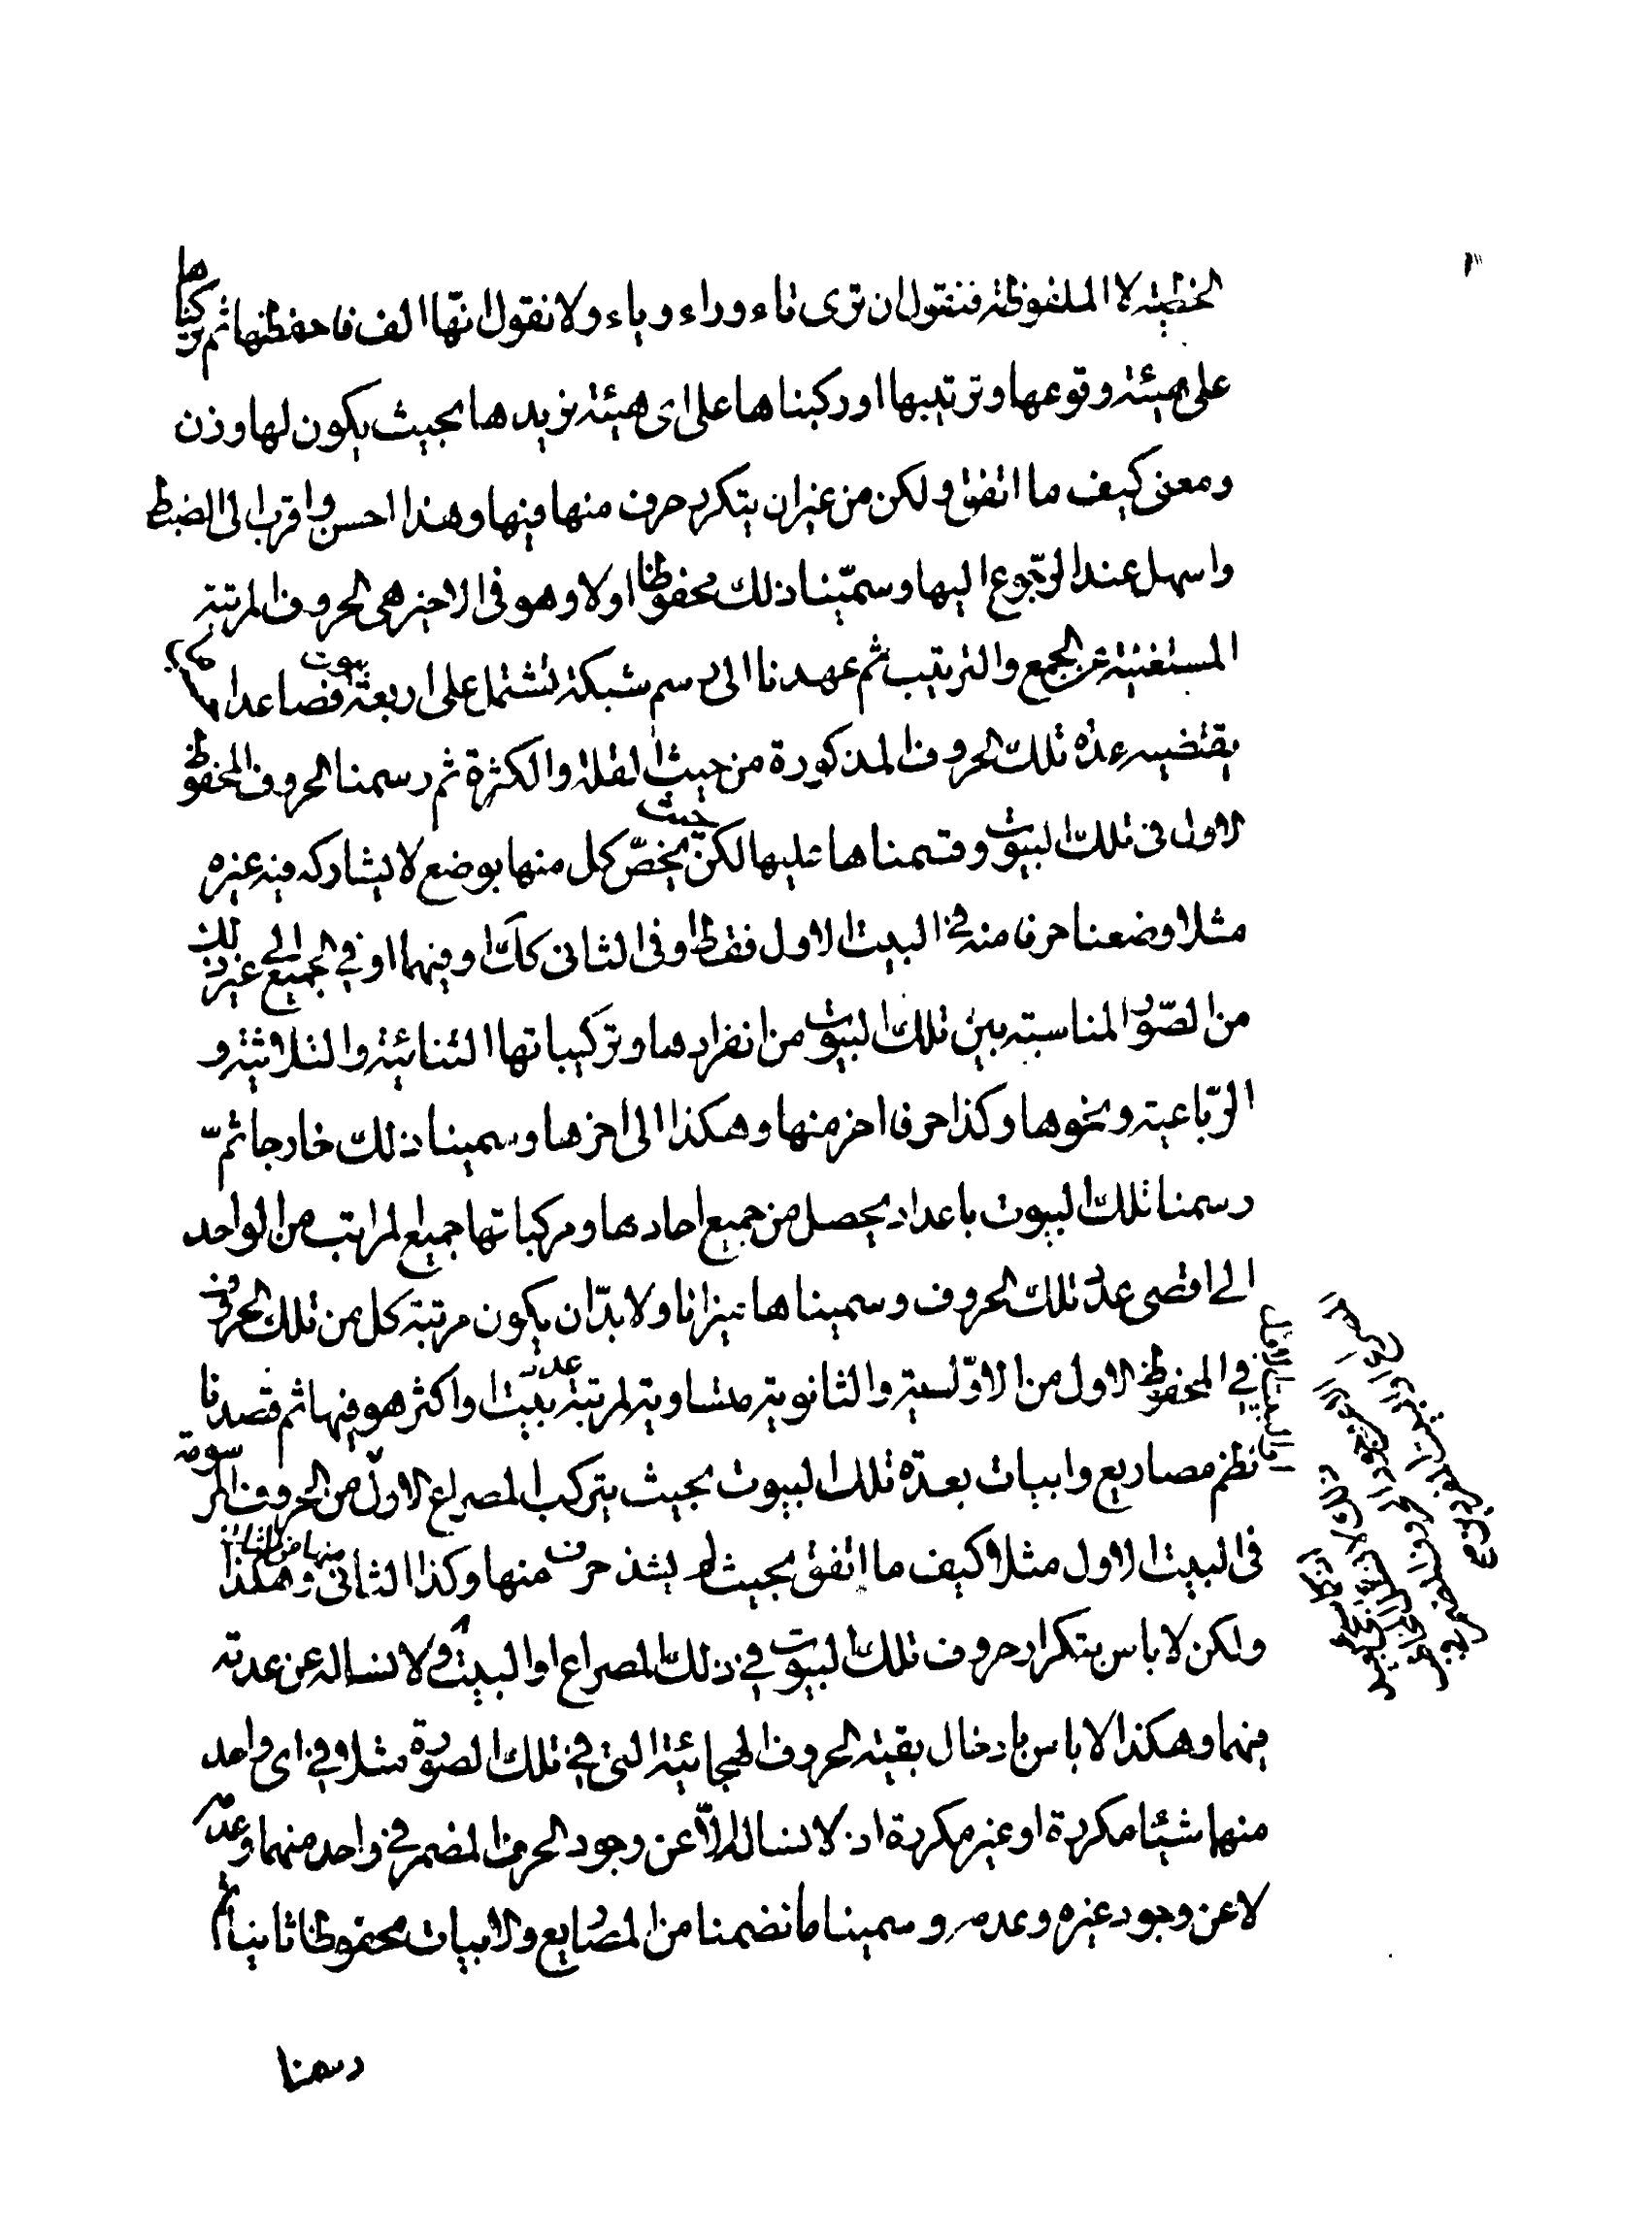 الخطیه لا الملفوظة فنقول ان تری تاء وراء ویاء ولا نقول انّها الف فاحفظها ثم رکبناها
علی هیئة وقوعها وترتیبها او رکبناها علی ای هیئة نریدها بحیث یکون لها وزن
ومعنی کیف ما اتفق ولکن من غیر ان یتکرر حرف منها فیها وهذا احسن واقرب الی الضبط
واسهل عند الرّجوع الیها وسمّینا ذلك محفوظا اولا وهو فی الاخیر هی الحروف المرتبة
المستغنیة عن الجمع والترتیب ثم عهدنا الی رسم شبکة تشتمل علی اربعة بیوت فصاعدا
یقتضیه عدة تلك الحروف المذکورة من حیث القلة والکثرة ثم رسمنا الحروف المحفوظ
الاول فی تلك البیوت وقسمناها علیها لکن بحیث یخصّ کل منها بوضع لا یشارکه فیه غیره
مثلا وضعنا حرفا منه فی البیت الاول فقط او فی الثانی کك او فیهما او فی الجمیع الی غیر ذلك
من الصّور المناسبة بین تلك البیوت من انفرادها وترکیباتها الثنائیة والثلاثیة و
الرّباعیة ونحوها وکذا حرفا اخر منها وهکذا الی اخرها وسمینا ذلك خارجا ثمّ
رسمنا تلك البیوت باعداد یحصل من جمیع احادها ومرکباتها جمیع المراتب من الواحد
الی اقصی عدد تلك الحروف وسمیناها میزانا ولا بدّ ان یکون مرتبة کل من تلك الحروف
فی المحفوظ الاول من الاوّلیة والثانویة متساویة لمرتبة عدد بیت او اکثر هو فیها ثم قصدنا
نظم مصاریع وابیات بعدّة تلك البیوت بحیث یترکب المصراع الاول من الحروف المرسومة
فی البیت الاول مثلا کیف ما اتفق بحیث لم یشذ حرف منها وکذا الثانی منها من الثانی وهکذا
ولکن لا باس بتکرار حروف تلك البیوت فی ذلك المصراع او البیت ولا نساله عن عدته
فیهما وهکذا لا باس بادخال بقیة الحروف الهجائیة التی فی تلك الصورة مثلا فی ای واحد
منها شیئا مکررة او غیر مکررة اذ لا نساله الّا عن وجود الحرف المضمر فی واحد منهما وعدمه
لا عن وجود غیره وعدمه وسمینا ما نضمنا من المصاریع والابیات محفوظا ثانیا ثم
او البیت الاول
رسمنا